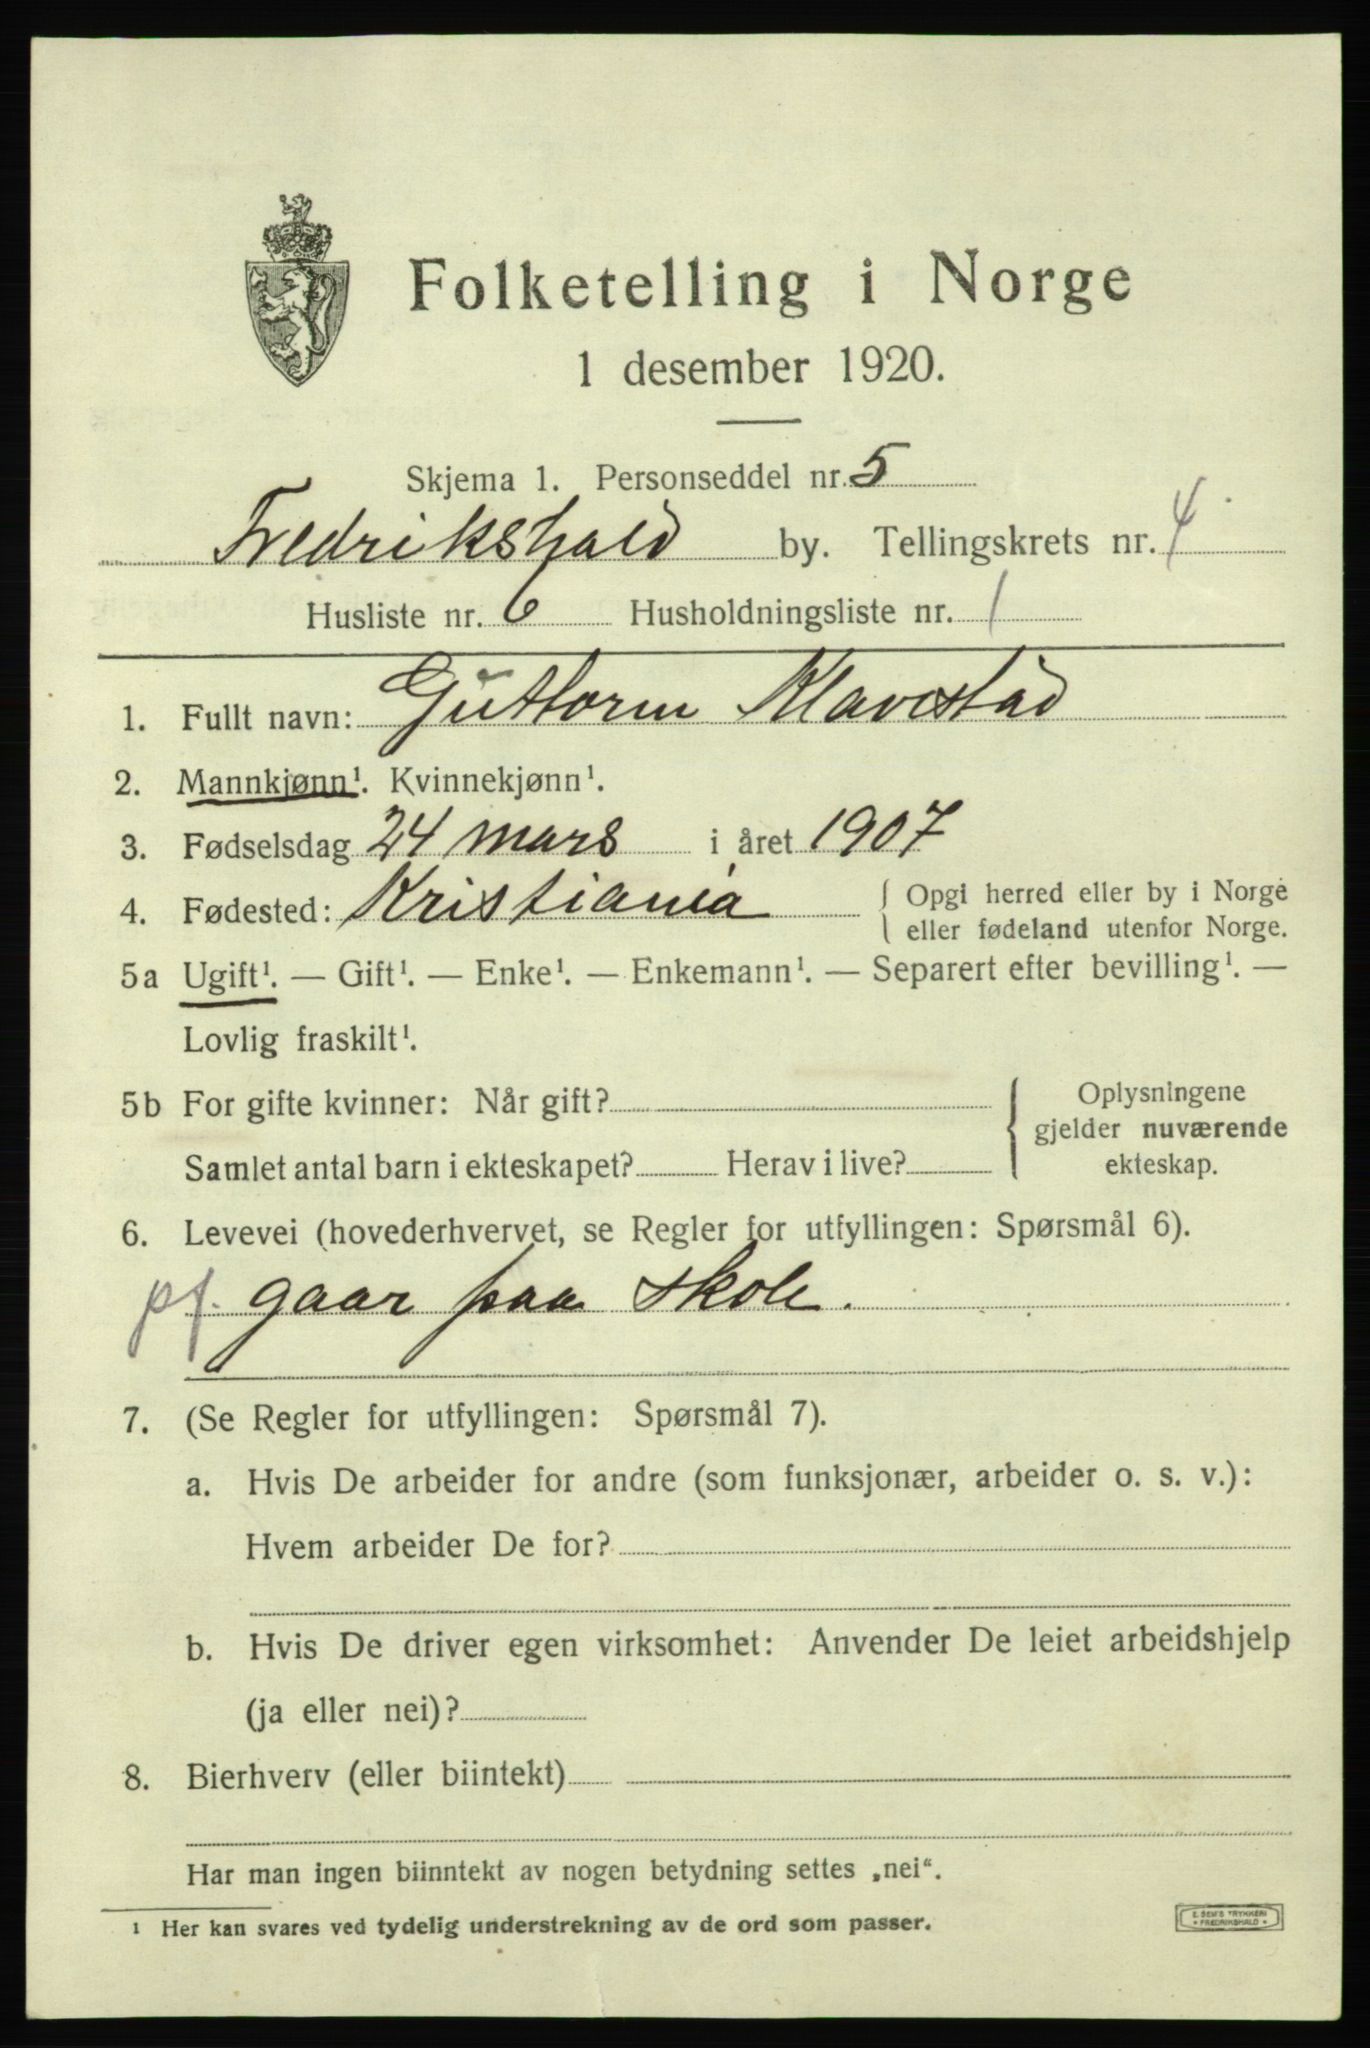 Folketelling i Norge
1 desember 1920.
Skjema 1. Personseddel nr. 5
Fredrikshald by. Tellingskrets nr. 4
Husliste nr. 6 Husholdningsliste nr. 1
1. Fullt navn: Guttorm Klavestad
2. Mannkjønn¹. Kvinnekjønn¹.
3. Fødselsdag 24 mars i året 1907
4. Fødested: Kristiania { Opgi herred eller by i Norge
eller fødeland utenfor Norge.
5a Ugift¹. — Gift¹. — Enke¹. — Enkemann¹. — Separert efter bevilling¹. —
Lovlig fraskilt¹.
5b For gifte kvinner: Når gift? { Oplysningene
gjelder nuværende
Samlet antal barn i ekteskapet? Herav i live? ekteskap.
6. Levevei (hovederhvervet, se Regler for utfyllingen: Spørsmål 6).
pf. gaar paa skole.
7. (Se Regler for utfyllingen: Spørsmål 7).
a. Hvis De arbeider for andre (som funksjonær, arbeider o. s. v.):
Hvem arbeider De for?
b. Hvis De driver egen virksomhet: Anvender De leiet arbeidshjelp
(ja eller nei)?
8. Bierhverv (eller biintekt)
Har man ingen biinntekt av nogen betydning settes „nei“.
¹ Her kan svares ved tydelig understrekning av de ord som passer.
E. SEM'S TRYKKERI
• FREDRIKSHALD •